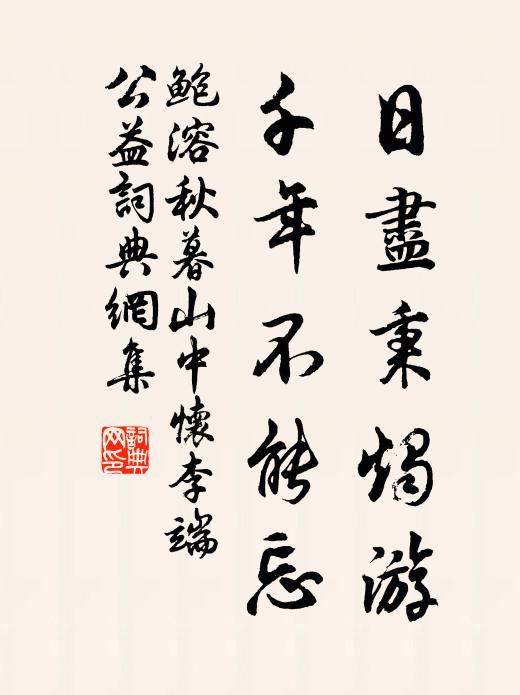 日盡秉燭游
千年不能忘
鮑溶秋暮山中懷李端
公益詞典網集
詞典
网印